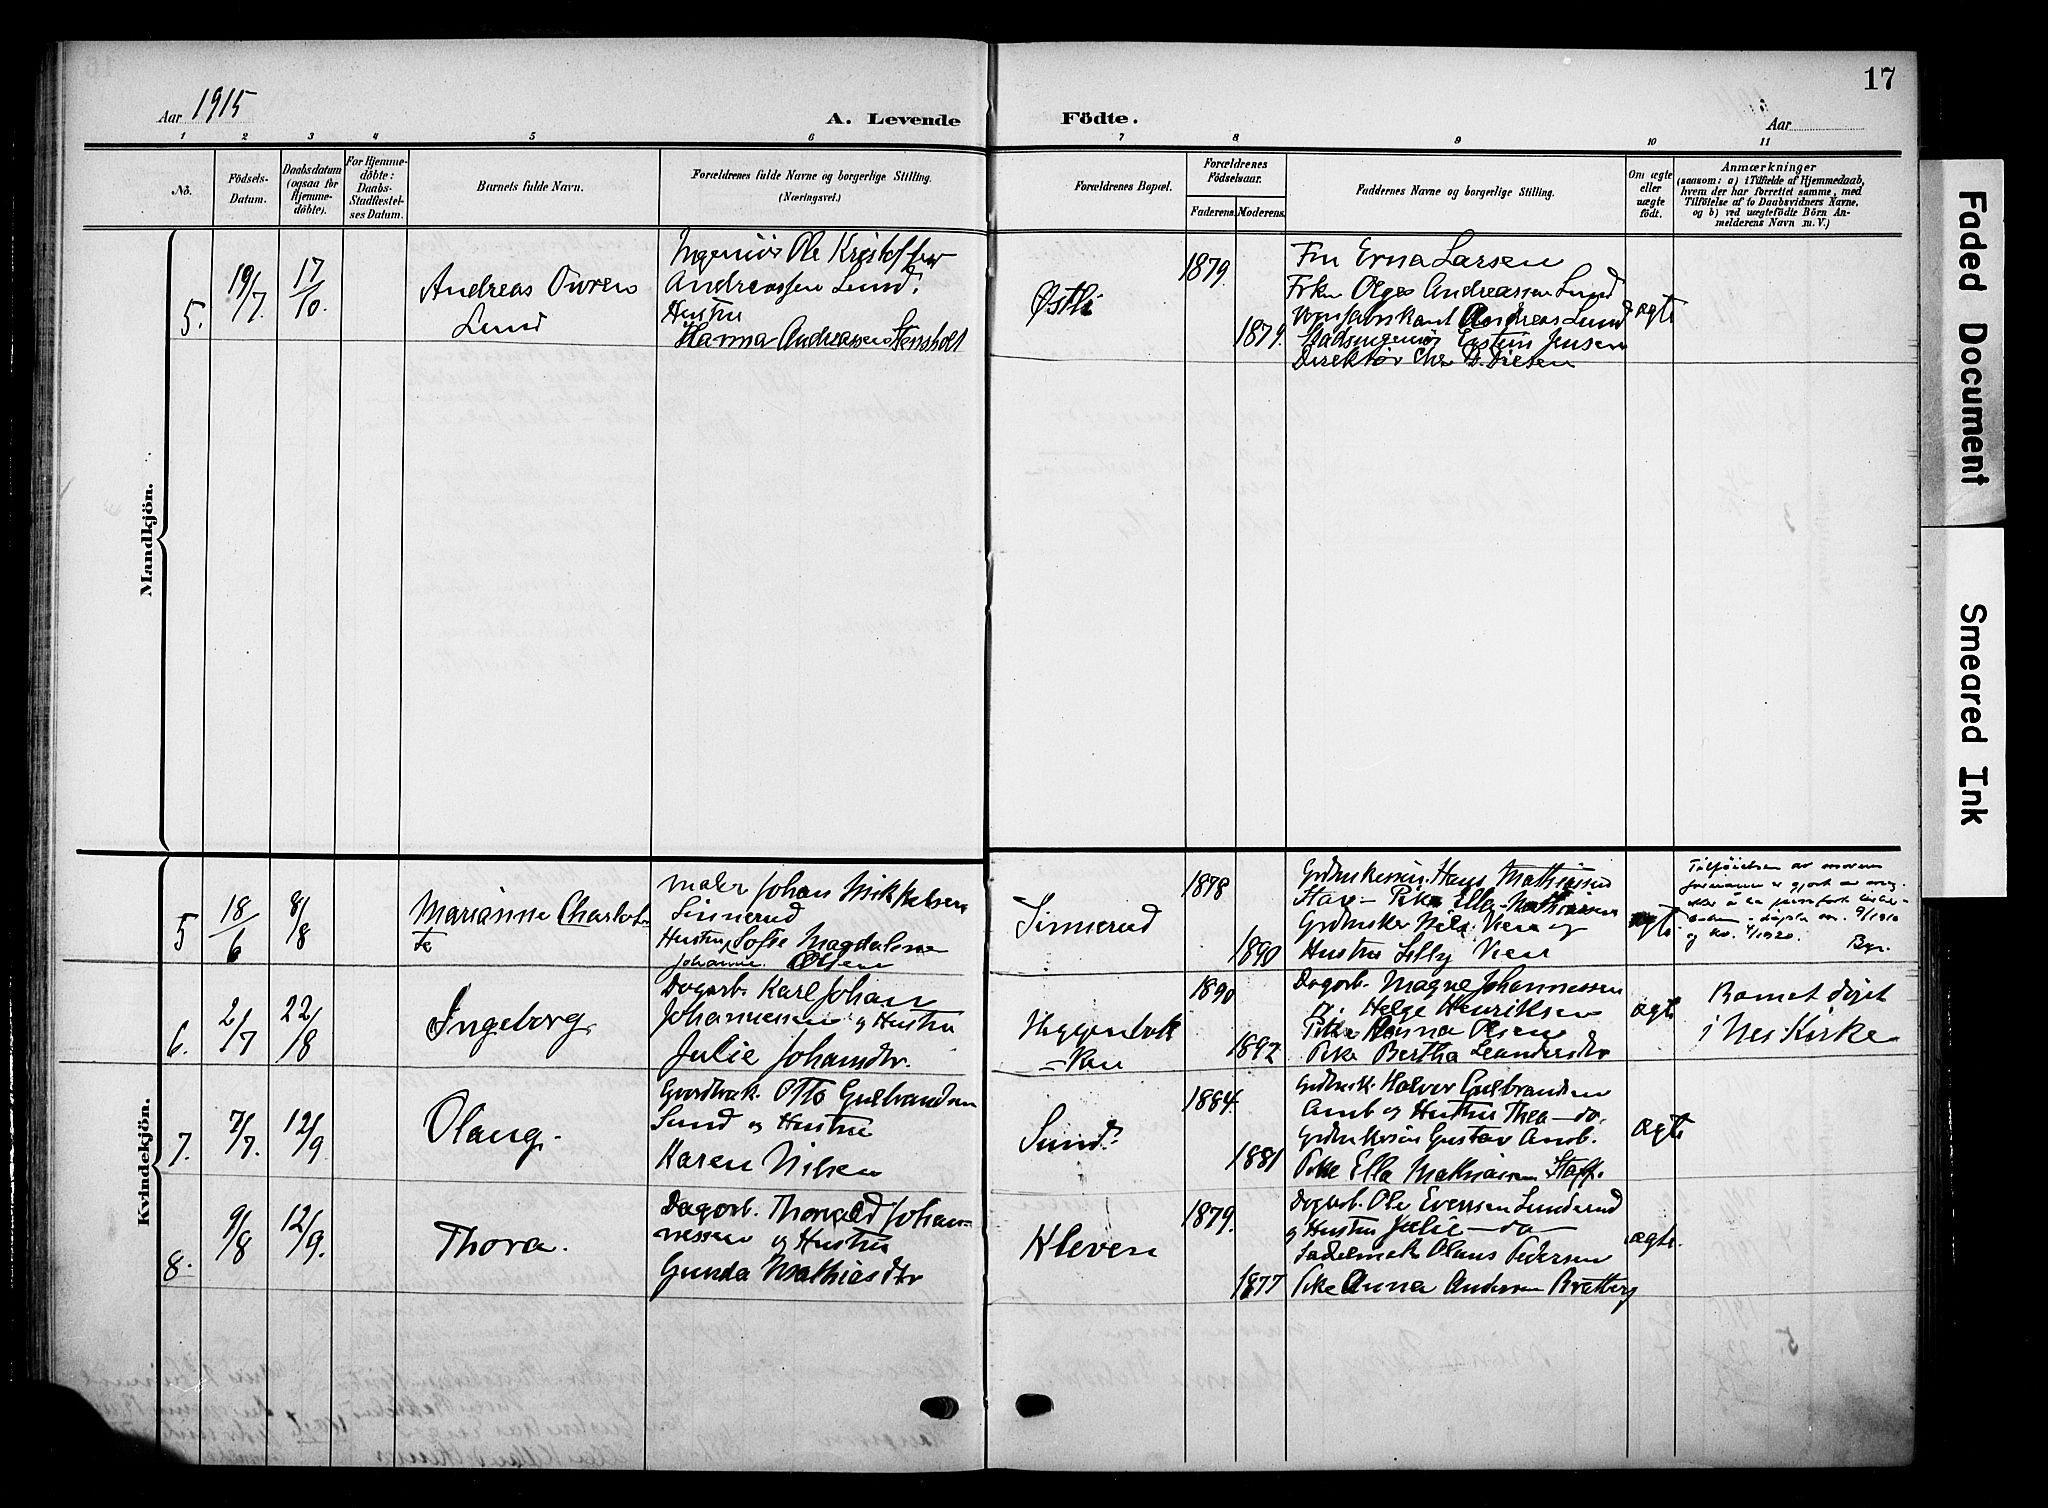 17
Aar 1915
A. Levende Födte.
Aar
1 2 3 4 5 6 7 8 9 10 11
No.
Födsels-
Datum.
Daabsdatum
(ogsaa for
Hjemme-
döbte).
For Hjemme-
döbte:
Daabs-
Stadfæstel-
ses Datum.
Barnets fulde Navn.
Forældrenes fulde Navne og borgerlige Stilling.
(Næringsvei.)
Forældrenes Bopæl.
Forældrenes
Födselsaar.
Faderens.
Moderens.
Faddernes Navne og borgerlige Stilling.
Om ægte
eller
uægte
födt.
Anmærkninger
(saasom: a) i Tilfælde af Hjemmedaab,
hvem der har forrettet samme, med
Tilföielse af to Daabsvidners Navne,
og b) ved uægtefödte Börn An-
melderens Navn m. V.)
Mandkjön.
5. 19/7. 17/10.
Andreas Owren
Lund
Ingeniør Ole Kristoffer
Andreassen Lund.
Hustru
Hanna Andreassen Stensholt
Østli
1879.
1879.
Fru Erna Larsen
Frkn Olga Andreassen Lund
Andreas Lund
Stadsingeniør Eystein Jensen
Direktør Chr D. Diesen
ægte
Kvindekjön.
5 18/6 8/8
Marianne Charlot-
te
Maler Johan Mikkelsen
Sinnerud
Hustru Sofie Magdalene
Johanne Olsen
Sinnerud
1878
1890
Hans Mathiesen
Pike Ella Mathiesen
Nils Veen og
Hustru Lilly Veen
ægte
Tilføielsen av
6. 2/7 22/8
Ingeborg
Dagarb. Karl Johan
Johannessen og Hustru
Julie Johansdtr.
1890
1892
Dagarb. Magne Johannessen
Helge Henriksen
Pike Anna Olsen
Pike Bertha Leandersdtr
ægte
Barnet døpt
i Nes Kirke
7. 7/7. 12/9
Olaug.
Gaardbruk. Otto Gulbrandsen
Sund og Hustru
Karen Nilsen
Sund.
1884.
1881
Grdbruk. Halvor Gulbrandsen
Amb og Hustru Thea – do.
Gustav Amb.
Pike Ella Mathiesen Staff.
ægte
8. 9/8 12/9.
Thora.
Dagarb. Thorvald Johan-
nessen og Hustru
Gunda Mathiasdtr
Kleven
1879.
1877
Dagarb. Ole Evensen Sunderud
og Hustru Julie – do –
Sadelmak Olaus Pedersen
Pike Anna Andersen Bratberg
ægte.
Faded Document
Smeared Ink